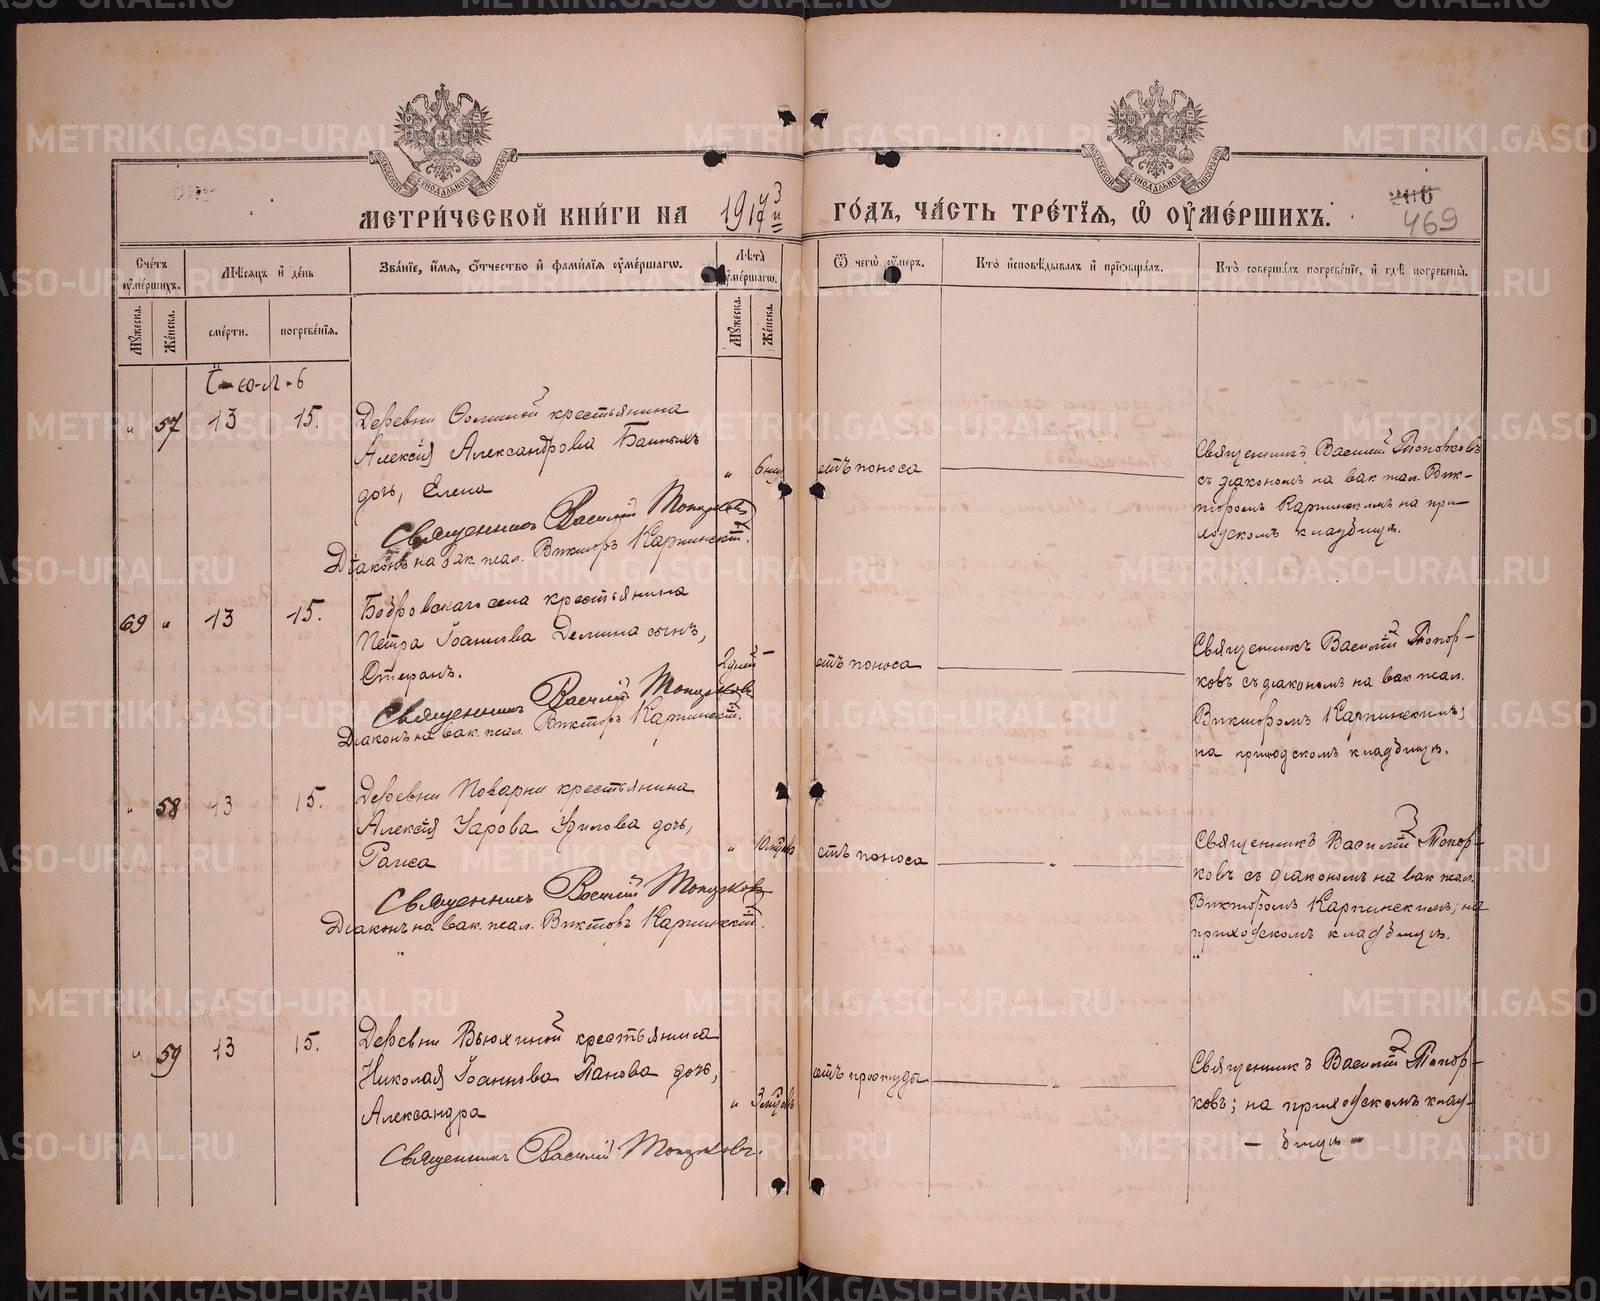 МЕТРИ́ЧЕСКОЙ КНИ́ГИ НА 1917 ГО́ДЪ, ЧА́СТЬ ТРЕ́ТІѦ, Ѿ ОУМЕ́РШИХЪ.
469
Счетъ оумершихъ.
Мѣсяцъ и день
Званіе, имя, отчество и фамилія оумершагѡ.
Лѣта оумершагѡ.
Ѿ чегѡ оумеръ.
Кто исповѣдывалъ и пріѡбщалъ.
Кто совершалъ погребеніе, и гдѣ погребены.
Мужеска.
Женска.
смерти.
погребенія.
Мужеска.
Женска.
І-ю-л-ь
" 57 13 15.
Деревни крестьянина
Алексія Александрова
дочь, Елена
Священникъ Василій Топорковъ
Діаконъ на вак. псал. Викторъ Карпинскій.
" 6
отъ поноса
Священникъ Василій Топорковъ
съ діакономъ на вак. псал. Вик-
торомъ Карпинскимъ на при-
ходскомъ кладбищѣ.
69 " 13 15.
Бобровскаго села крестьянина
Петра Іоаннова Демина сынъ,
Стефанъ.
Священникъ Василій Топорковъ
Діаконъ на вак. псал. Викторъ Карпинскій.
2 дней
отъ поноса
Священникъ Василій Топор-
ковъ съ діакономъ на вак. псал.
Викторомъ Карпинскимъ;
на приходскомъ кладбищѣ.
" 58 13 15.
Деревни Поварни крестьянина
Алексія Уарова дочь,
Раиса
Священникъ Василій Топорковъ
Діаконъ на вак. псал. Викторъ Карпинскій.
"
отъ поноса
Священникъ Василій Топор-
ковъ съ діакономъ на вак. псал.
Викторомъ Карпинскимъ; на
приходскомъ кладбищѣ.
" 59 13 15.
Деревни Вьюхиной крестьянина
Николая Іоаннова Панова дочь,
Александра
Священникъ Василій Топорковъ.
" 3
отъ простуды
Священникъ Василій Топор-
ковъ; на приходскомъ клад-
- бищѣ -
METRIKI.GASO-URAL.RU